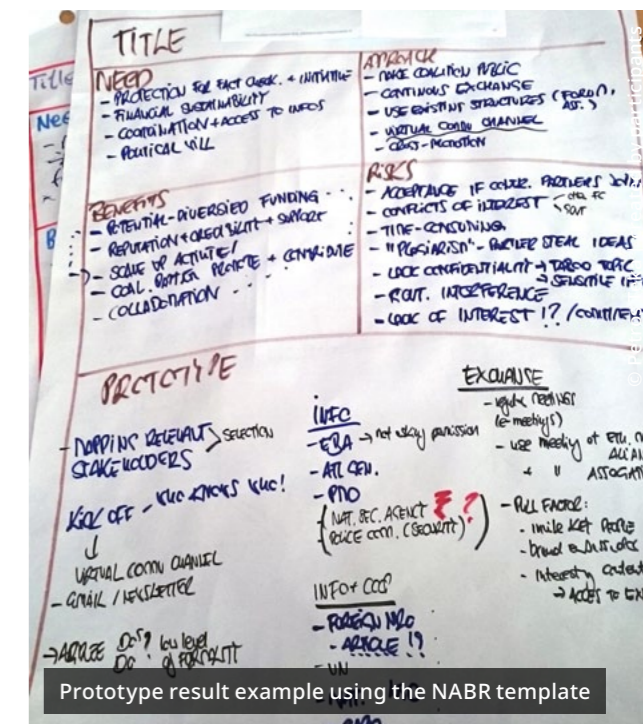 TITLE
NEED
- PROTECTION FOR FACT CHECK. + INITIATIVE
- FINANCIAL SUSTAINABILITY
- COORDINATION + ACCESS TO INFOS
- POLITICAL WILL
APPROACH
- MAKE COALITION PUBLIC
- CONTINOUS EXCHANGE
- USE EXISTING STRUCTURES (FORUM,
ASS.)
- VIRTUAL COMM CHANNEL
- CROSS-PROMOTION
BENEFITS
- POTENTIAL-DIVERSIFIED FUNDING
- REPUTATION + CREDIBILITY + SUPPORT
- SCALE UP ACTIVITIE/
- COAL. PROMOTE + CONTRIBUTE
- COLLABORATION
RISKS
- ACCEPTANCE IF PARTNERS JOIN
- CONFLICTS OF INTEREST
- TIME-CONSUMING
- "PLAGIARISM" - PARTNER STEAL IDEAS
- LACK CONFIDENTIALITY → TABOO TOPIC
→ SENSITIVE
- GOUT. INTERFERENCE
- LACK OF INTEREST !? /
PROTOTYPE
- MAPPING RELEVANT STAKEHOLDERS > SELECTION
KICK OFF - WHO KNOWS WHO!
↓
VIRTUAL COMM CHANNEL
- GMAIL / NEWSLETTER
→ low level
of FORMALITY
INFO
- EBA → not asking permission
- ATT. GEN.
- PMO
(NAT. SEC. AGENCY ?
POLICE COM. (SECURITY))
INFO + COOP
- FOREIGN NGO
- ARTICLE !?
- UN
EXCHANGE
- regular meetings
(e-meetings)
- use meeting of
- PULL FACTOR:
- invite KEY PEOPLE
- Interesting content
→ ACCESS TO
Title
Nee
B
Prototype result example using the NABR template